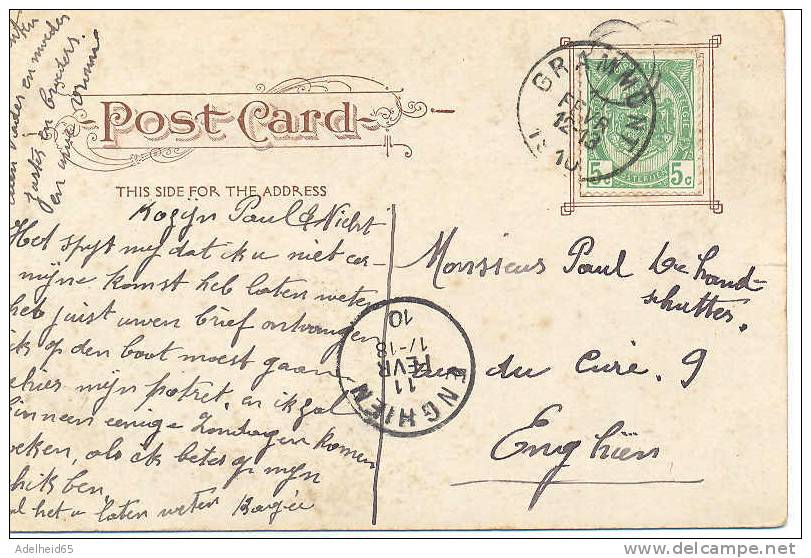 vader en moeder
Justs en broeders.
en uwe
Post Card
THIS SIDE FOR THE ADDRESS
GRAMMONT
FEVR
12-13
10
POSTES
5c 5c
Kozijn Paul & Nicht
Het spyt mij dat ik u niet
mijne komst heb laten weten
heb juist uwen brief ontvangen
ik op den boot moest gaan
hier mijn potret, en ik zal
binnen eenige Zondagen komen
als ik beter op mijn
schik ben,
het u laten weten
Monsieur Paul De hand-
schutter.
rue du Curé. 9
Enghien
ENGHIEN
11
FEVR
17-18
10
© Adelheid65
http://www.delcampe.net